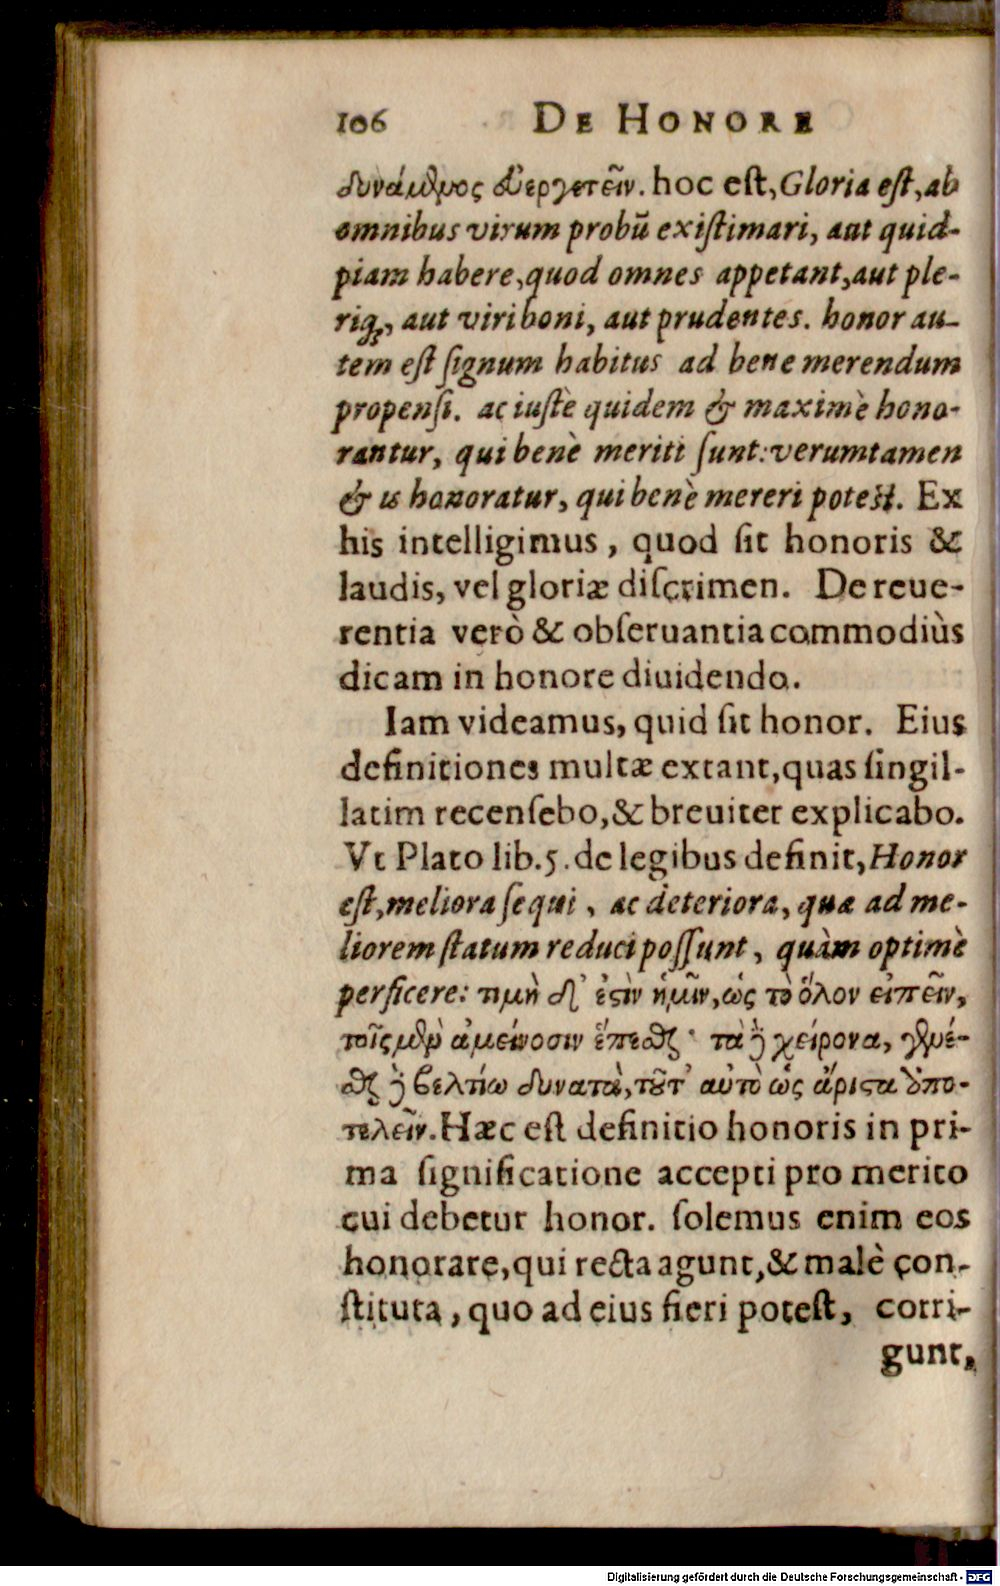 106 DE HONORE
δυνάμενος εὐεργετεῖν. hoc eſt, Gloria eſt, ab
omnibus virum probū exiſtimari, aut quid-
piam habere, quod omnes appetant, aut ple-
riq;, aut viri boni, aut prudentes. honor au-
tem eſt ſignum habitus ad bene merendum
propenſi. ac iuſtè quidem & maximè hono-
rantur, qui benè meriti ſunt: verumtamen
& is honoratur, qui benè mereri poteſt. Ex
his intelligimus, quod ſit honoris &
laudis, vel gloriæ diſcrimen. De reue-
rentia verò & obſeruantia commodiùs
dicam in honore diuidendo.
Iam videamus, quid ſit honor. Eius
definitiones multæ extant, quas ſingil-
latim recenſebo, & breuiter explicabo.
Vt Plato lib. 5. de legibus definit, Honor
eſt, meliora ſequi, ac deteriora, quæ ad me-
liorem ſtatum reduci poſſunt, quàm optimè
perficere: τιμὴ δ' ἐστὶν ἡμῖν, ὡς τὸ ὅλον εἰπεῖν,
τοῖς μὲν ἀμείνοσιν ἕπεσθαι· τὰ δὲ χείρονα, γενέ-
σθαι δὲ βελτίω δυνατὰ, τοῦτ' αὐτὸ ὡς ἄριστα ἀπο-
τελεῖν. Hæc eſt definitio honoris in pri-
ma ſignificatione accepti pro merito
cui debetur honor. ſolemus enim eos
honorare, qui recta agunt, & malè con-
ſtituta, quo ad eius fieri poteſt, corri-
gunt,
Digitalisierung gefördert durch die Deutsche Forschungsgemeinschaft - DFG